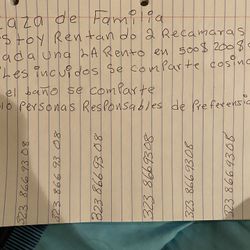 aza de Familia
stoy Rentando 2 Recamaras
ada una LA Rento en 500$ 200$
Les incuidos se comparte cosin
el baño se comparte
lo personas Responsables de Preferensi
323 866 93 08
323.866 93 08
323 866 93 08
323 8669308
323 8669308
323 8669308